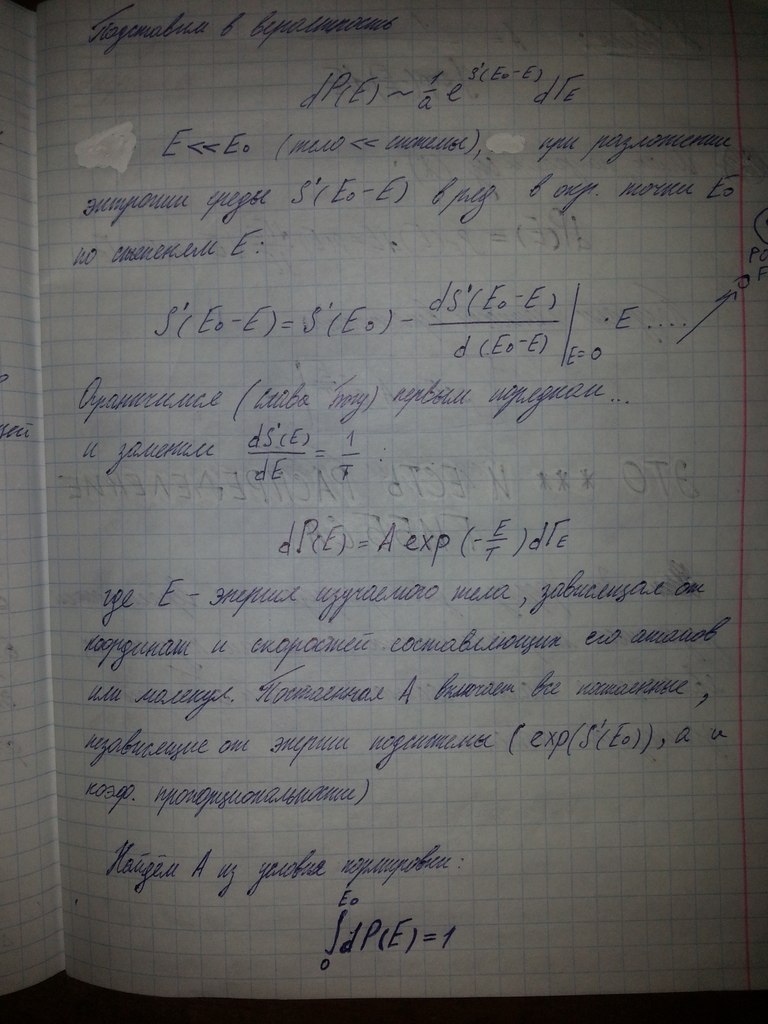 Подставим в вероятность
dP(E) ~ 1/a e^S'(E₀-E) dГ_E
E << E₀ (тело << системы), при разложении
энтропии среды S'(E₀-E) в ряд в окр. точки E₀
по степеням E:
S'(E₀-E) = S'(E₀) - dS'(E₀-E)/d(E₀-E) |_E=0 · E ....
Ограничимся (слава Богу) первым порядком...
и заменим dS'(E)/dE = 1/T :
dP(E) = A exp(-E/T) dГ_E
где E - энергия изучаемого тела, зависящая от
координат и скоростей составляющих его атомов
или молекул. Постоянная A включает все постоянные,
независящие от энергии подсистемы (exp(S'(E₀)), a и
коэф. пропорциональности)
Найдём A из условия нормировки:
∫₀^E₀ dP(E) = 1